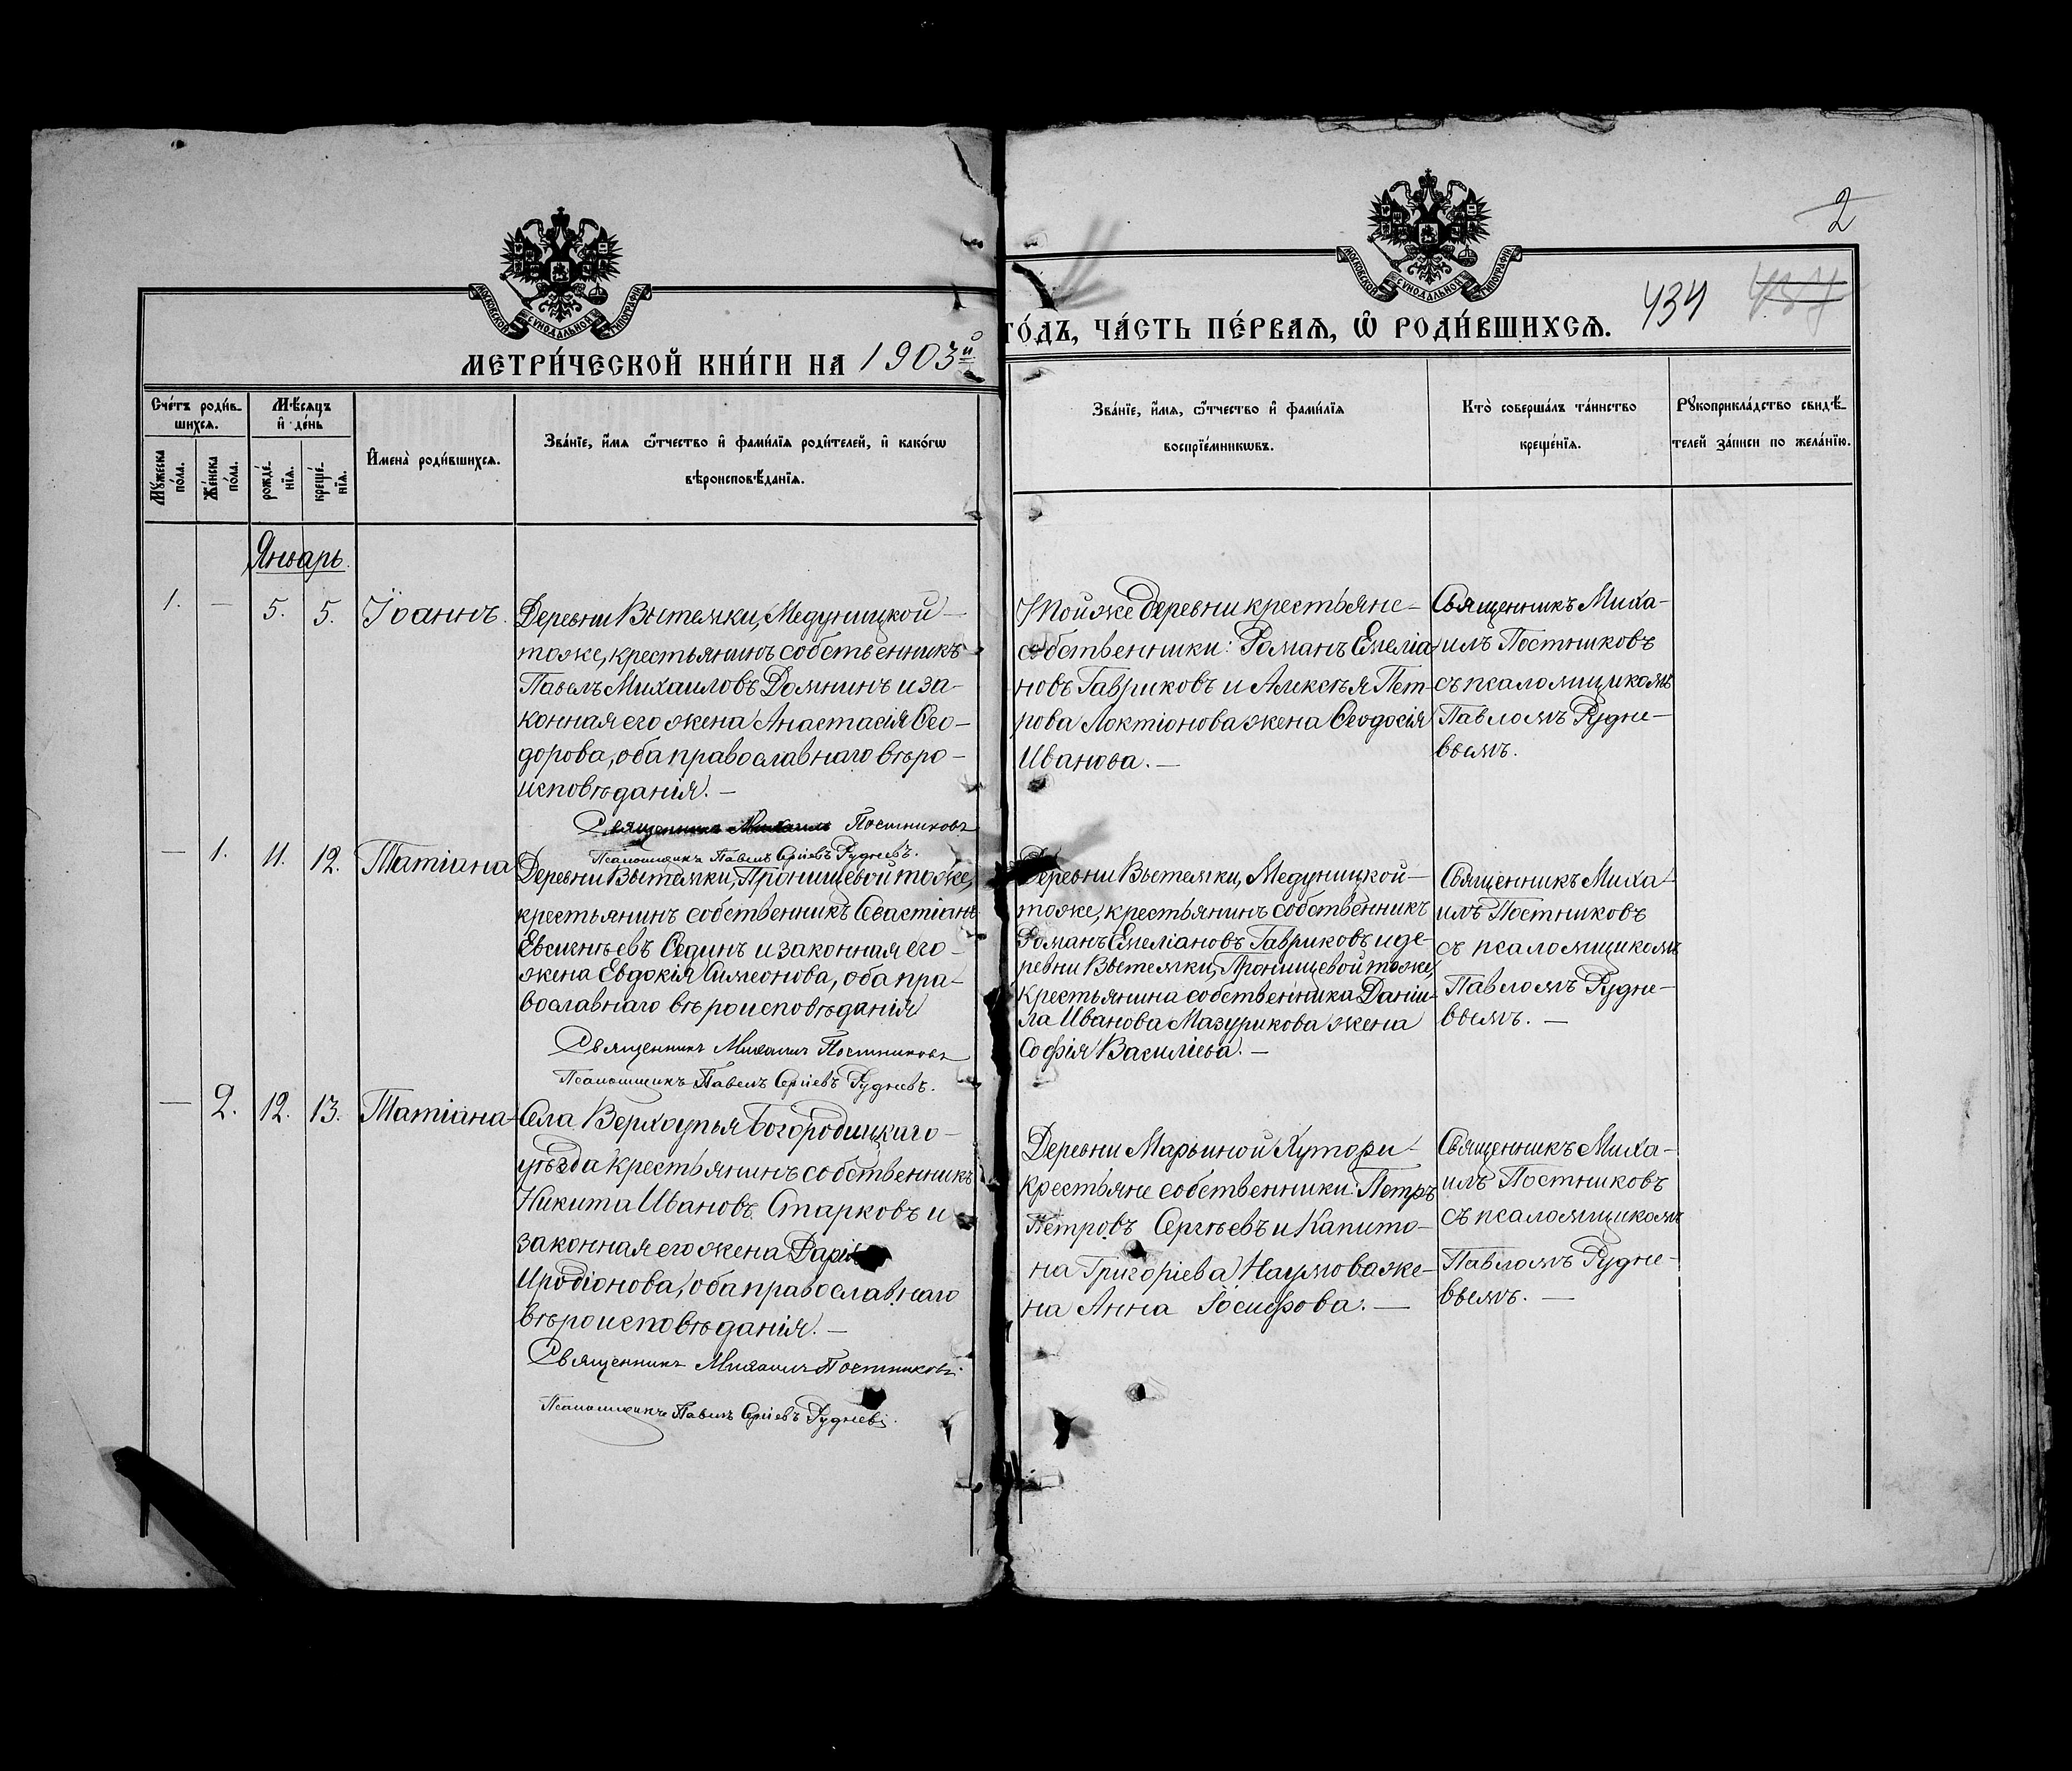 2
МОСКОВСКОЙ СѴНОДАЛЬНОЙ ТИПОГРАФІИ
МОСКОВСКОЙ СѴНОДАЛЬНОЙ ТИПОГРАФІИ
МЕТРИ́ЧЕСКОЙ КНИ́ГИ НА 1903й
ГО́ДЪ, ЧА́СТЬ ПЕ́РВАѦ, Ѡ҆ РОДИ́ВШИХСѦ. 434
Сче́тъ роди́в-
шихсѧ.
Мѣ́сѧцъ
и҆ де́нь
Мꙋ́жеска
по́ла.
Же́нска
по́ла.
рожде́-
нїѧ.
креще́-
нїѧ.
И҆мена̀ роди́вшихсѧ.
Зва́нїе, и҆́мѧ ѻ҆́тчество и҆ фами́лїѧ роди́телей, и҆ како́гѡ
вѣроисповѣ́данїѧ.
Зва́нїе, и҆́мѧ, ѻ҆́тчество и҆ фами́лїѧ
воспрїе́мникѡвъ.
Кто̀ соверша́лъ та́инство
креще́нїѧ.
Рꙋкоприкла́дство свидѣ́-
телей за́писи по жела́нїю.
Январь.
1. — 5. 5. Іоаннъ.
Деревни Вытемки, Медуницкой
тоже, крестьянинъ собственникъ
Павелъ Михаиловъ Домнинъ и за-
конная его жена Анастасія Ѳео-
дорова, оба православнаго вѣро-
исповѣданія. —
Священникъ Михаилъ Постниковъ
Псаломщикъ Павелъ Сергіевъ Рудневъ.
Той же деревни крестьяне-
собственники: Романъ Емеліа
новъ Гавриковъ и Алексѣя Пет-
рова Локтіонова жена Ѳеодосія
Иванова. —
Священникъ Миха-
илъ Постниковъ
съ псаломщикомъ
Павломъ Рудне-
вымъ.
— 1. 11. 12. Татіана
Деревни Вытемки, Пронищевой тоже,
крестьянинъ собственникъ Севастіанъ
Евсигнѣевъ Сединъ и законная его
жена Евдокія Симеонова, оба пра-
вославнаго вѣроисповѣданія
Священникъ Михаилъ Постниковъ
Псаломщикъ Павелъ Сергіевъ Рудневъ.
Деревни Вытемки, Медуницкой
тоже, крестьянинъ собственникъ
Романъ Емеліановъ Гавриковъ и де-
ревни Вытемки, Пронищевой тоже,
крестьянина собственника Даніи-
ла Иванова Мазурикова жена
Софія Василіева. —
Священникъ Миха-
илъ Постниковъ
съ псаломщикомъ
Павломъ Рудне-
вымъ. —
— 2. 12. 13. Татіана
Села Верхоупья Богородицкаго
уѣзда крестьянинъ собственникъ
Никита Ивановъ Старковъ и
законная его жена Дарія
Иродіонова, оба православнаго
вѣроисповѣданія. —
Священникъ Михаилъ Постниковъ.
Псаломщикъ Павелъ Сергіевъ Рудневъ.
Деревни Марьиной Хутори
крестьяне собственники: Петръ
Петровъ Сергѣевъ и Капито-
на Григоріева Наумова же-
на Анна Іосифова. —
Священникъ Миха-
илъ Постниковъ
съ псаломщикомъ
Павломъ Рудне-
вымъ. —